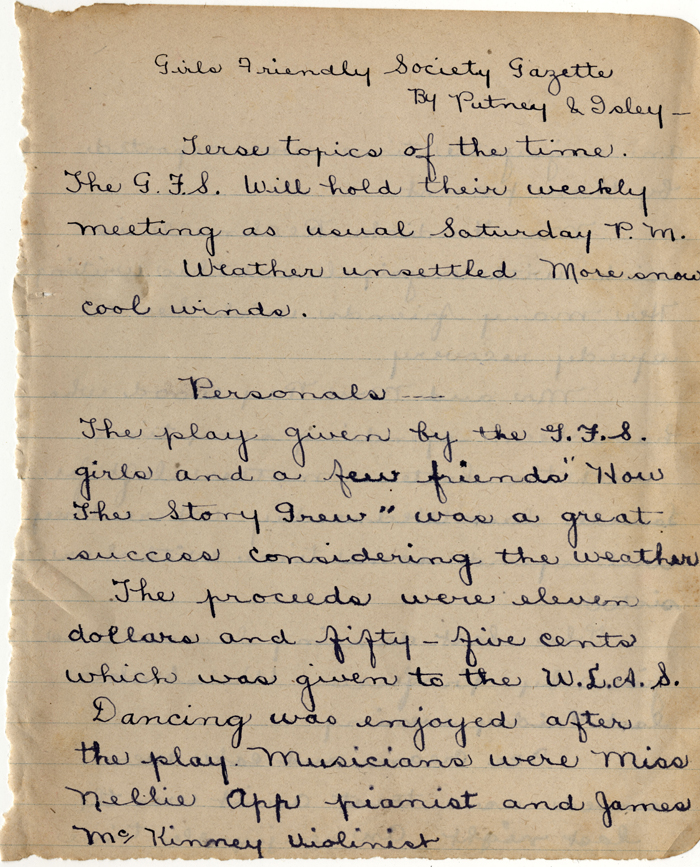 Girls Friendly Society Gazette
By Putney & Isley —
Terse topics of the time.
The G.F.S. Will hold their weekly
meeting as usual Saturday P.M.
Weather unsettled More snow
cool winds.
Personals ---
The play given by the G.F.S.
girls and a few friends "How
The Story Grew" was a great
success considering the weather
The proceeds were eleven
dollars and fifty-five cents
which was given to the W.L.A.S.
Dancing was enjoyed after
the play. Musicians were Miss
Nellie App pianist and James
McKinney violinist